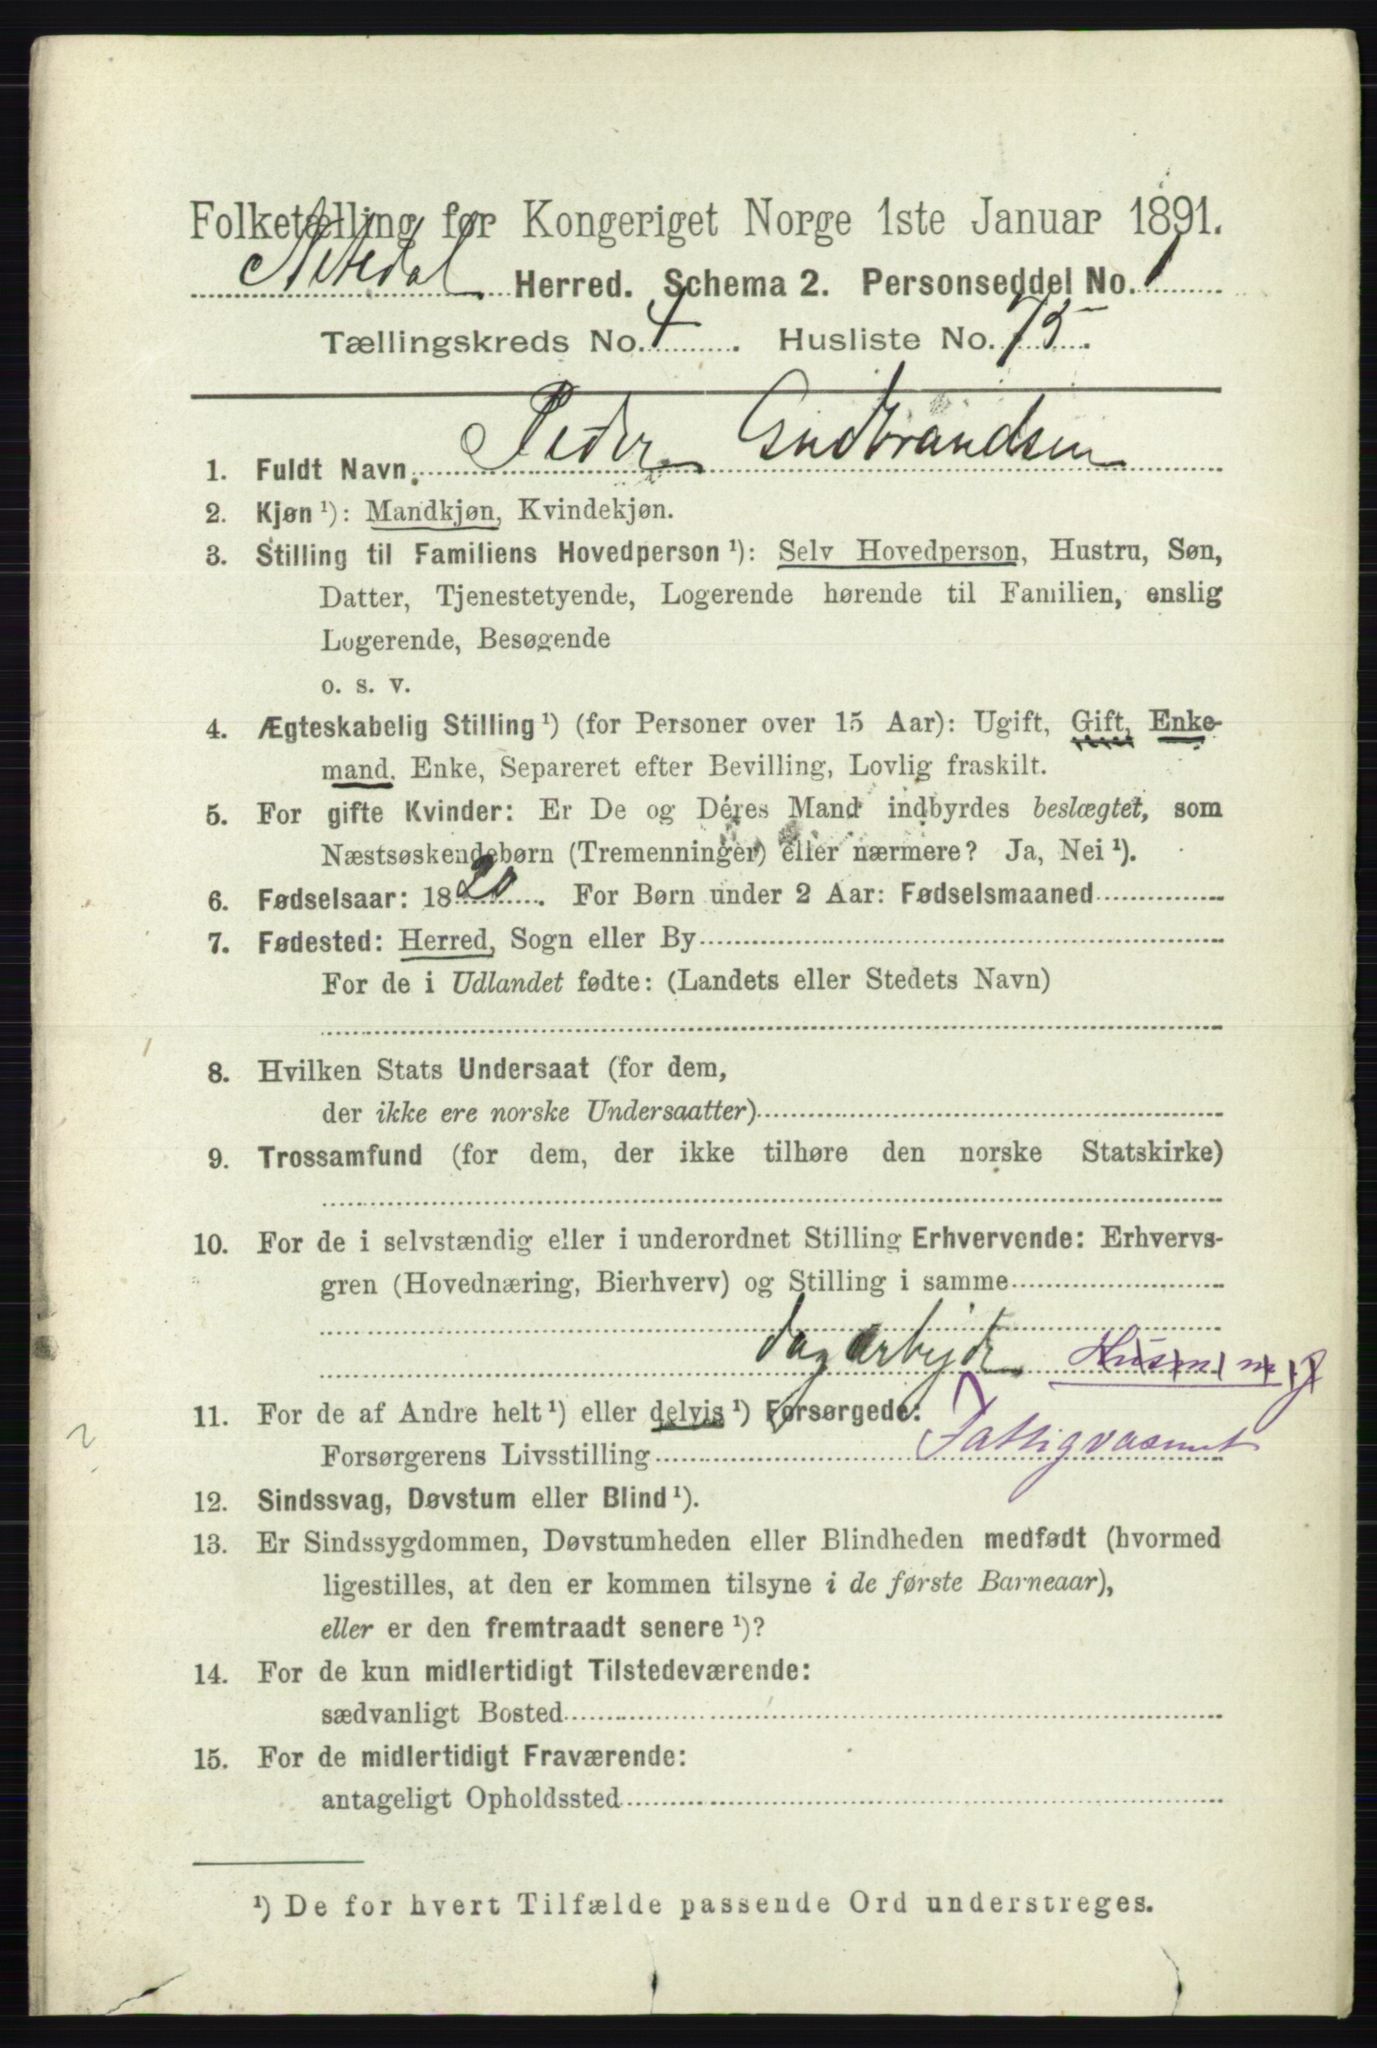 Folketælling for Kongeriget Norge 1ste Januar 1891.
Nitedal Herred. Schema 2. Personseddel No. 1
Tællingskreds No. 4. Husliste No. 75.
1. Fuldt Navn Peder Gudbrandsen
2. Kjøn ¹): Mandkjøn, Kvindekjøn.
3. Stilling til Familiens Hovedperson ¹): Selv Hovedperson, Hustru, Søn,
Datter, Tjenestetyende, Logerende hørende til Familien, enslig
Logerende, Besøgende
o. s. v.
4. Ægteskabelig Stilling ¹) (for Personer over 15 Aar): Ugift, Gift, Enke-
mand, Enke, Separeret efter Bevilling, Lovlig fraskilt.
5. For gifte Kvinder: Er De og Deres Mand indbyrdes beslægtet, som
Næstsøskendebørn (Tremenninger) eller nærmere? Ja, Nei ¹).
6. Fødselsaar: 1820. For Børn under 2 Aar: Fødselsmaaned
7. Fødested: Herred, Sogn eller By
For de i Udlandet fødte: (Landets eller Stedets Navn)
8. Hvilken Stats Undersaat (for dem,
der ikke ere norske Undersaatter)
9. Trossamfund (for dem, der ikke tilhøre den norske Statskirke)
10. For de i selvstændig eller i underordnet Stilling Erhvervende: Erhvervs-
gren (Hovednæring, Bierhverv) og Stilling i samme
dagarbejde
11. For de af Andre helt ¹) eller delvis ¹) Forsørgede:
Forsørgerens Livsstilling Fattigvæsenet
12. Sindssvag, Døvstum eller Blind ¹).
13. Er Sindssygdommen, Døvstumheden eller Blindheden medfødt (hvormed
ligestilles, at den er kommen tilsyne i de første Barneaar),
eller er den fremtraadt senere ¹)?
14. For de kun midlertidigt Tilstedeværende:
sædvanligt Bosted
15. For de midlertidigt Fraværende:
antageligt Opholdssted
¹) De for hvert Tilfælde passende Ord understreges.
2